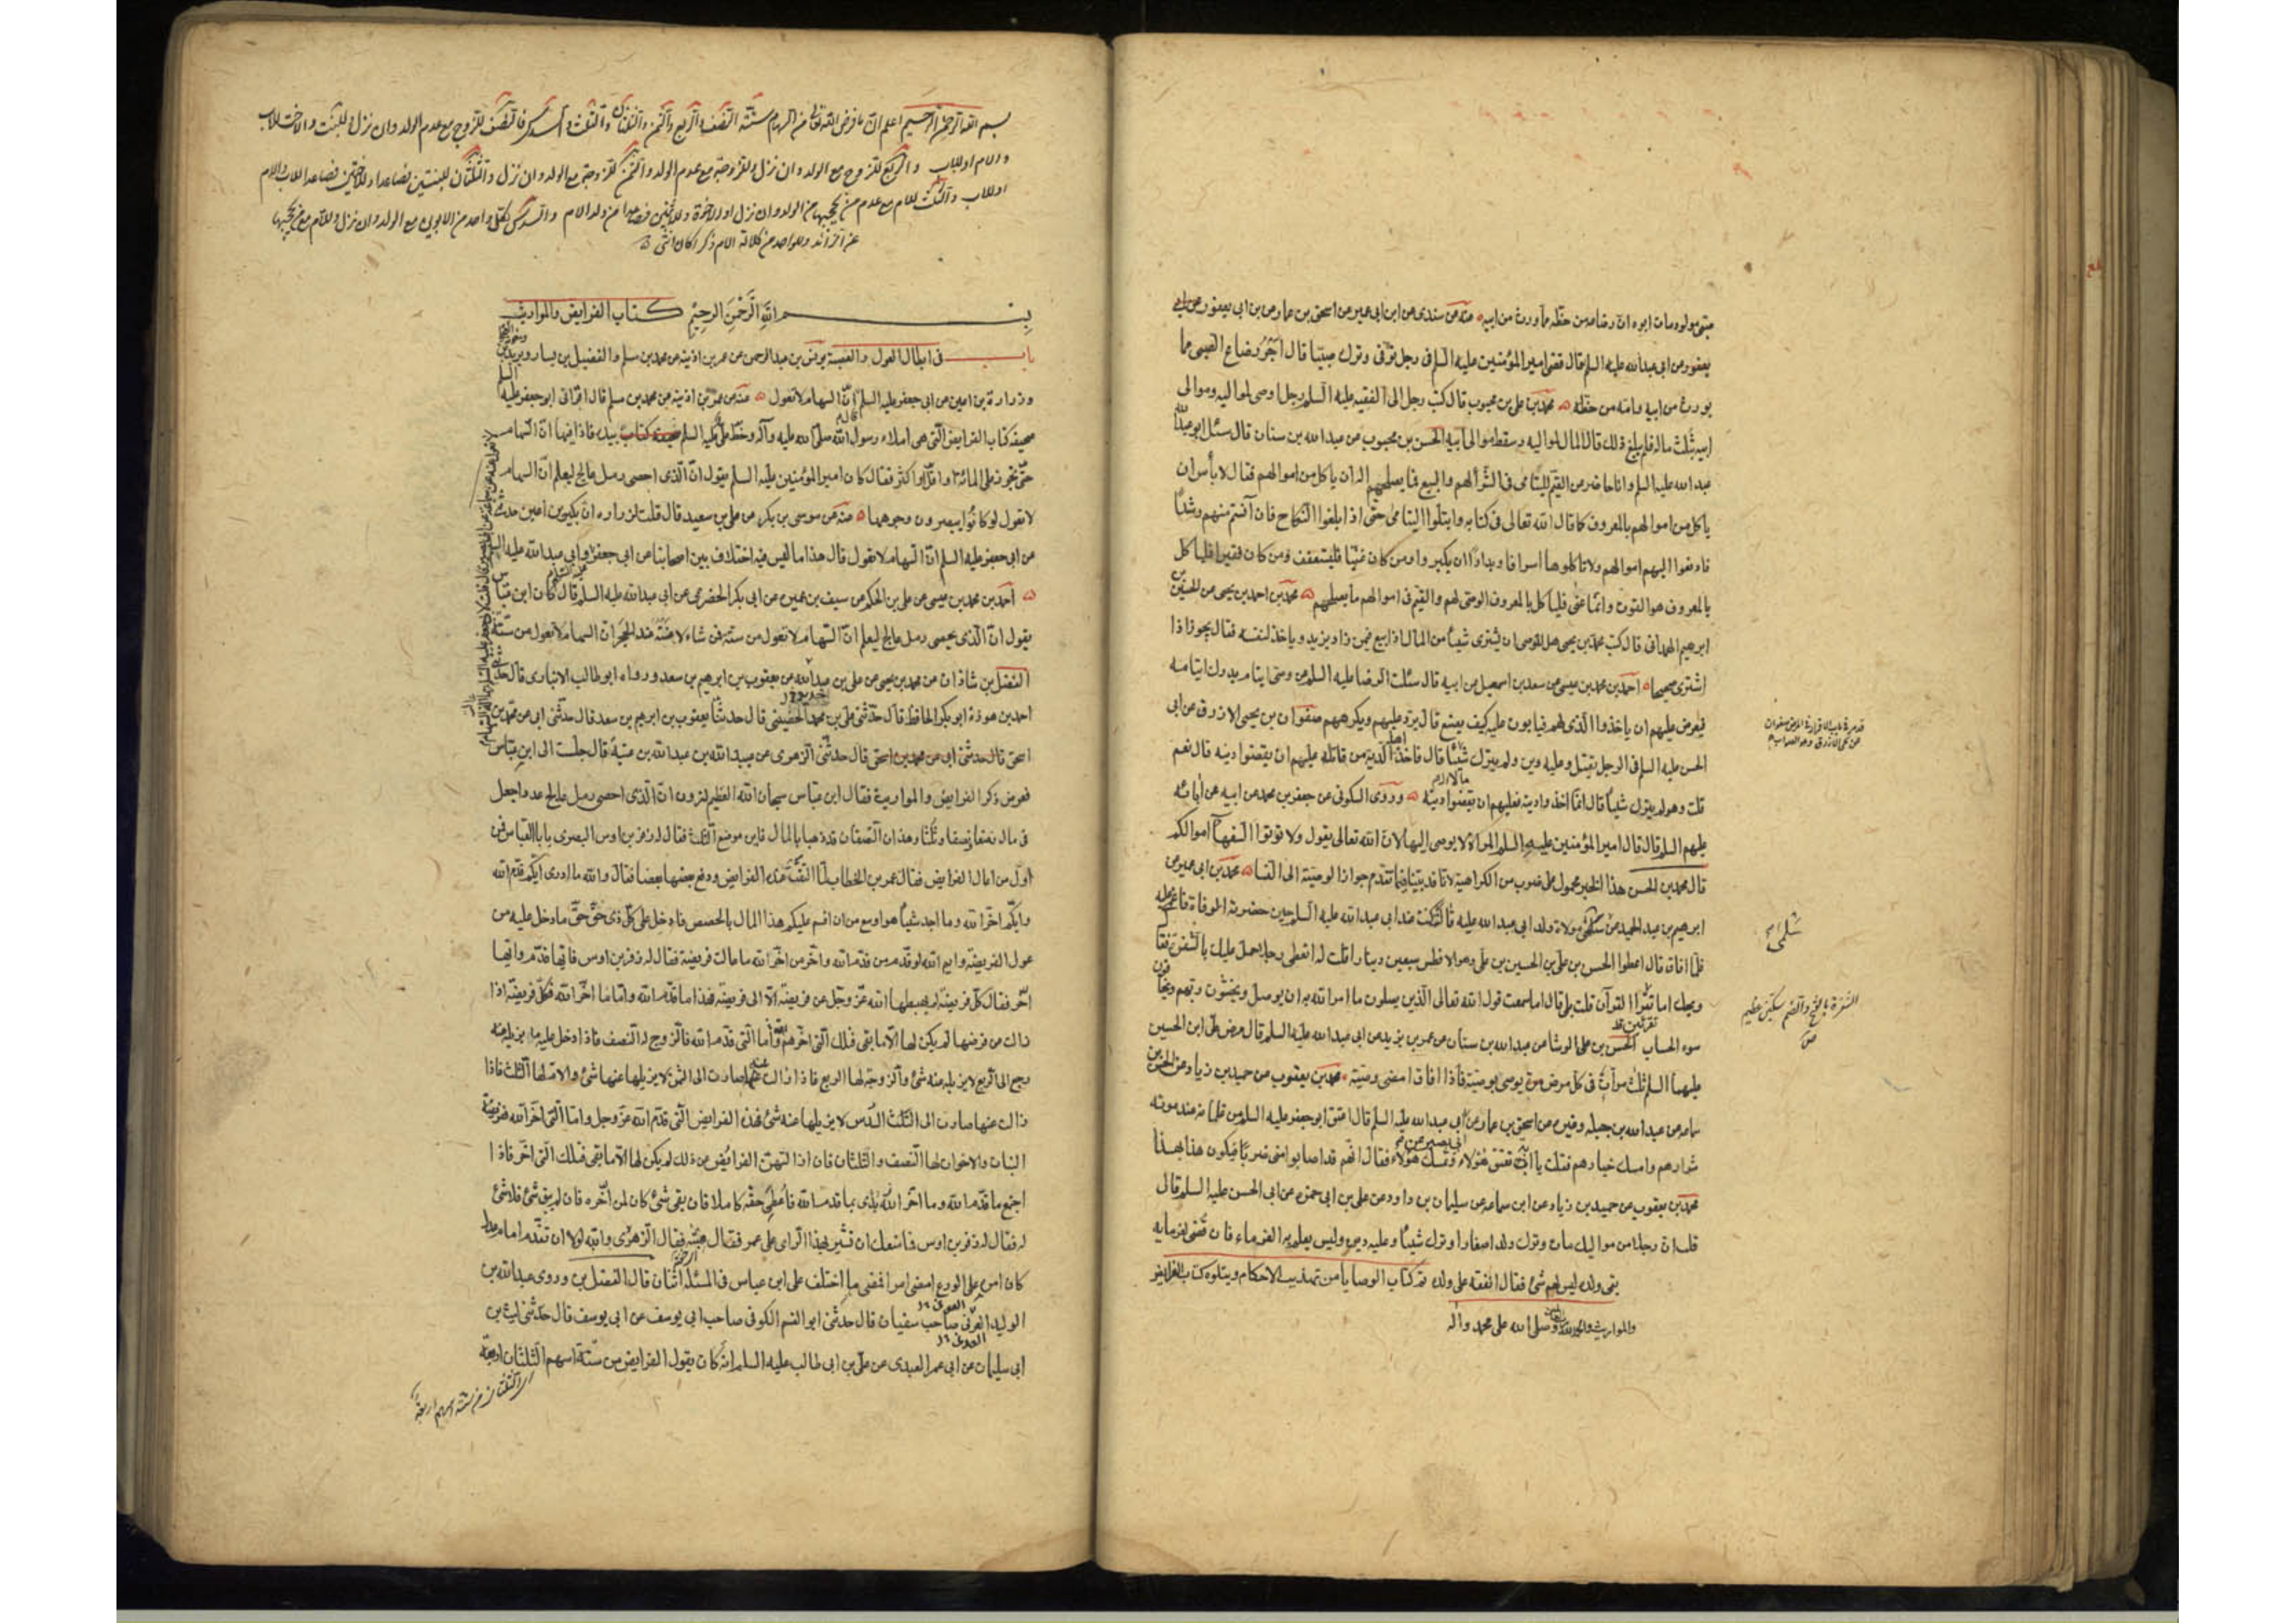 صبى مولود مات ابوه ان رضاعه من حظه مما ورث من ابيه منه عن سندى عن ابن ابى عمير عن اسحق بن عمار عن بن ابى يعفور عن ابى
يعفور عن ابى عبد الله عليه السلم قال قضى امير المؤمنين عليه السلم فى رجل توفى وترك صبيا قال اجر رضاع الصبى مما
يورث من ابيه وامه من حظه محمد بن على بن محبوب قال كتب رجل الى الفقيه عليه السلم رجل اوصى لمواليه وموالى
ابيه بثلث ماله فلم يبلغ ذلك قال المال لمواليه وسقط موالى ابيه الحسن بن محبوب عن عبد الله بن سنان قال سئل ابو عبد الله
عبد الله عليه السلم وانا حاضر عن القيم لليتامى فى الشرآ لهم والبيع فيما يصلحهم اله ان ياكل من اموالهم فقال لا بأس ان
ياكل من اموالهم بالمعروف كما قال الله تعالى فى كتابه وابتلوا اليتامى حتى اذا بلغوا النكاح فان آنستم منهم رشدًا
فادفعوا اليهم اموالهم ولا تاكلوها اسرافا وبدارًا ان يكبروا ومن كان غنيّا فليستعفف ومن كان فقيرا فلياكل
بالمعروف هو القوت وانما عنى فلياكل بالمعروف الوصى لهم والقيم فى اموالهم ما يصلحهم محمد بن احمد بن يحيى عن الحسين بن
ابرهيم الهمدانى قال كتب محمد بن يحيى هل للوصى ان يشترى شيئا من المال اذا بيع فيمن زاد يزيد وياخذ لنفسه فقال يجوز اذا
اشترى صحيحا احمد بن محمد بن عيسى عن سعد بن اسمعيل عن ابيه قال سئلت الرضا عليه السلم عن وصى ايتام يدرك ايتامه
فيعرض عليهم ان ياخذوا الذى لهم فيابون عليه كيف يصنع قال يرد عليهم ويكرههم صفوان بن يحيى الازرق عن ابى
الحسن عليه السلم فى الرجل يقتل وعليه دين ولم يترك شيئا قال فاخذ اهله الدية من قاتله عليهم ان يقضوا دينه قال نعم
قلت وهو لم يترك شيئًا قال انما اخذوا ديته فعليهم ان يقضوا دينه وروى السكونى عن جعفر بن محمد عن ابيه عن آبائه
عليهم السلم قال قال امير المؤمنين عليه السلم المرأة لا يوصى اليها لان الله تعالى يقول ولا تؤتوا السفهآ اموالكم
قال محمد بن الحسن هذا الخبر محمول على ضرب من الكراهية لانا قد بينا فيما تقدم جواز الوصية الى النسا محمد بن ابى عمير عن
ابرهيم بن عبد الحميد عن سلمى مولاة ولد ابى عبد الله عليه قالت كنت عند ابى عبد الله عليه السلم حين حضرته الوفاة فاغمى عليه
فلما افاق قال اعطوا الحسن بن على بن الحسين بن على وهو الافطس سبعين دينارا قلت له اتعطى رجلا يحمل عليك بالشفرة فقال
ويحك اما تقرا القرآن قلت بلى قال اما سمعت قول الله تعالى الذين يصلون ما امر الله به ان يوصل ويخشون ربهم ويخافون
سوء الحساب الحسن بن على الوشا عن عبد الله بن سنان عن عمر بن يزيد عن ابى عبد الله عليه السلم قال مرض على ابن الحسين
عليهما السلم ثلث مرات فى كل مرض مرة يوصى بوصية فاذا افاق امضى وصيته محمد بن يعقوب عن حميد بن زياد عن الحسن بن
سماعه عن عبد الله بن جبله وغيره عن اسحق بن عمار عن ابى عبد الله عليه السلم قال اعتق ابو جعفر عليه السلم من غلمانه عند موته
شرارهم وامسك خيارهم فقلت يا ابه تعتق هؤلاء وتمسك هؤلاء فقال انهم قد اصابوا منى ضربا فيكون هذا بهذا
محمد بن يعقوب عن حميد بن زياد عن ابن سماعه عن سليمان بن داود عن على بن ابى حمزه عن ابى الحسن عليه السلم قال
قلت ان رجلا من مواليك مات وترك ولدا صغارا وترك شيئا وعليه دين وليس يعلم به الغرماء فان قضى لغرمايه
بقى ولده ليس لهم شئ فقال انفقه على ولده تم كتاب الوصايا من تهذيب الاحكام ويتلوه كتاب الفرايض
والمواريث والحمد لله وصلى الله على محمد وآله
سلمى
الشفرة بالفتح والضم سكين عظيم
بسم الله الرحمن الرحيم اعلم ان ما فرض الله تعالى من السهام ستة النصف والربع والثمن والثلثان والثلث والسدس فالنصف للزوج مع عدم الولد وان نزل وللبنت والاخت للاب
والام او للاب والربع للزوج مع الولد وان نزل وللزوجة مع عدم الولد والثمن للزوجة مع الولد وان نزل والثلثان للبنتين فصاعدا وللاختين فصاعدا للاب والام
او للاب والثلث للام مع عدم من يحجبها من الولد وان نزل او الاخوة وللاثنين فصاعدا من ولد الام والسدس لكل واحد من الابوين مع الولد وان نزل وللام مع من يحجبها
عن الزائد وللواحد من كلالة الام ذكرا كان او انثى
بسم الله الرحمن الرحيم كتاب الفرايض والمواريث
باب فى ابطال العول والعصبة يونس بن عبد الرحمن عن عمر بن اذينه عن محمد بن مسلم والفضيل بن يسار وبريد
وزرارة بن اعين عن ابى جعفر عليه السلم ان السهام لا تعول منه عن عمر بن اذينه عن محمد بن مسلم قال اقرانى ابو جعفر عليه السلم
صحيفه كتاب الفرايض التى هى املاء رسول الله صلى الله عليه وآله وخط على عليه السلم بيده فاذا فيها ان السهام
لا تعول لو كانوا يبصرون وجوهها منه عن موسى بن بكر عن على بن سعيد قال قلت لزراره ان بكير بن اعين حدثنى
عن ابى جعفر عليه السلم ان السهام لا تعول قال هذا ما ليس فيه اختلاف بين اصحابنا عن ابى جعفر وابى عبد الله عليه السلم
احمد بن محمد بن عيسى عن على بن الحكم عن سيف بن عميره عن ابى بكر الحضرمى عن ابى عبد الله عليه السلم قال كان ابن عباس
يقول ان الذى يحصى رمل عالج ليعلم ان السهام لا تعول من ستة فمن شاء لاعنته عند الحجر ان السهام لا تعول من ستة
الفضل بن شاذان عن محمد بن يحيى عن على بن عبد الله عن يعقوب بن ابرهيم بن سعد ورواه ابو طالب الانبارى قال حدثنى
احمد بن هوذة ابو بكر الحافظ قال حدثنى على بن محمد الحضينى قال حدثنا يعقوب بن ابرهيم بن سعد قال حدثنى ابى عن محمد بن
اسحق قال حدثنى الزهرى عن عبيد الله بن عبد الله بن عتبة قال جلست الى ابن عباس
فعرض ذكر الفرايض والمواريث فقال ابن عباس سبحان الله العظيم اترون ان الذى احصى رمل عالج عددا جعل
فى مال نصفا ونصفا وثلثا وهذان النصفان قد ذهبا بالمال فاين موضع الثلث فقال له زفر بن اوس البصرى يا با العباس فمن
اول من اعال الفرايض فقال عمر بن الخطاب لما التفت عنده الفرايض ودفع بعضها بعضا فقال والله ما ادرى ايكم قدم الله
وايكم اخر الله وما اجد شيئا هو اوسع من ان اقسم عليكم هذا المال بالحصص فادخل على كل ذى حق حق ما دخل عليه من
عول الفريضة وايم الله لو قدم من قدم الله واخر من اخر الله ما عالت فريضة فقال له زفر بن اوس فايها قدم وايها
اخر فقال كل فريضة لم يهبطها الله عز وجل عن فريضة الا الى فريضة فهذا ما قدم الله واما ما اخر الله فكل فريضة اذا
زالت عن فرضها لم يكن لها الا ما بقى فتلك التى اخر الله واما التى قدم الله فالزوج له النصف فاذا دخل عليه ما يزيله عنه
رجع الى الربع لا يزيله عنه شئ والزوجة لها الربع فاذا زالت عنه صارت الى الثمن لا يزيلها عنها شئ والام لها الثلث فاذا
زالت عنها صارت الى الثلث السدس لا يزيلها عنه شئ فهذه الفرايض التى قدم الله عز وجل واما التى اخر الله ففريضة
البنات والاخوات لها النصف والثلثان فان ازالتهن الفرائض عن ذلك لم يكن لها الا ما بقى فتلك التى اخر فاذا
اجتمع ما قدم الله وما اخر الله بدى بما قدم الله فاعطى حقه كاملا فان بقى شئ كان لمن اخره فان لم يبق شئ فلا شئ
له فقال له زفر بن اوس فما منعك ان تشير بهذا الراى على عمر فقال هيبته فقال الزهرى والله لولا ان تقدمه امام عدل
كان امره على الورع امضى امرا فمضى ما اختلف على ابن عباس فى المسئلة اثنان قال الفضل بن وروى عبد الله بن
الوليد العرنى صاحب سفيان قال حدثنى ابو القسم الكوفى صاحب ابى يوسف عن ابى يوسف قال حدثنى ليث بن
ابى سليمان عن ابى عمر العبدى عن على بن ابى طالب عليه السلم انه كان يقول الفرايض من ستة اسهم الثلثان اربعة